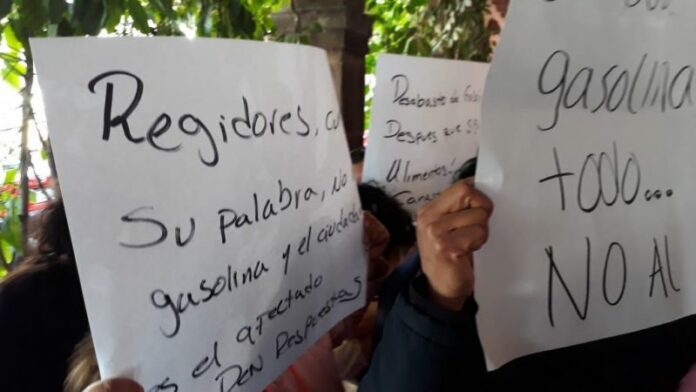 Regidores, cu
su palabra, no
gasolina y el ciudada
es el afectado
DEN Respuestas
Desabasto de
Despues que
Alimentos!
gasolina
todo...
NO AL